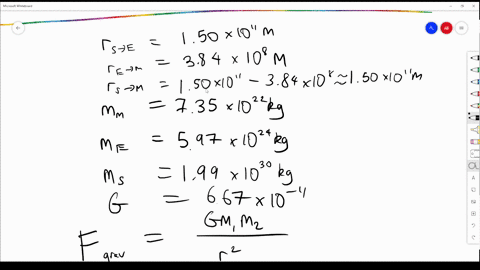 Microsoft Whiteboard
r S→E = 1.50 × 10¹¹ m
r E→m = 3.84 × 10⁸ M
r S→m = 1.50 × 10¹¹ − 3.84 × 10⁸ ≈ 1.50 × 10¹¹ m
m M = 7.35 × 10²² kg
m E = 5.97 × 10²⁴ kg
m S = 1.99 × 10³⁰ kg
G = 6.67 × 10⁻¹¹
F grav = GM₁M₂ / r²